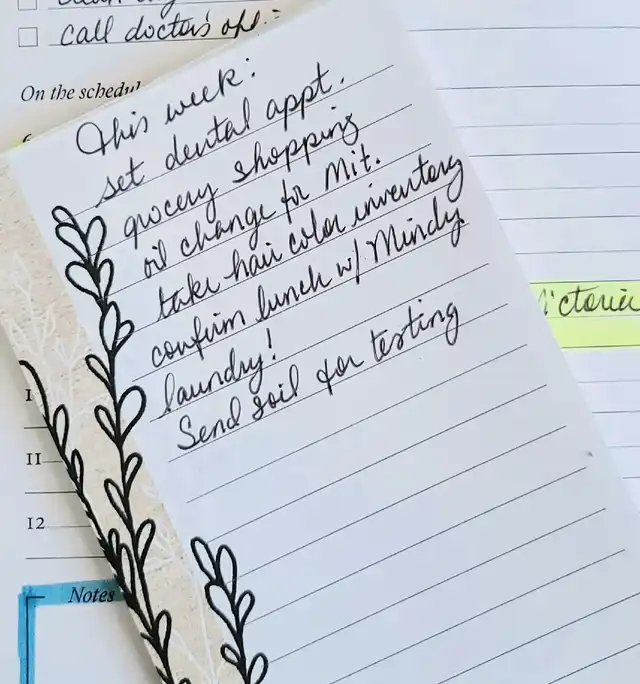 call doctor's
On the schedul
This week:
set dental appt.
grocery shopping
oil change for Mit.
take hair color inventory
confirm lunch w/ Mindy
laundry!
Send soil for testing
ictoria
11
12
Notes